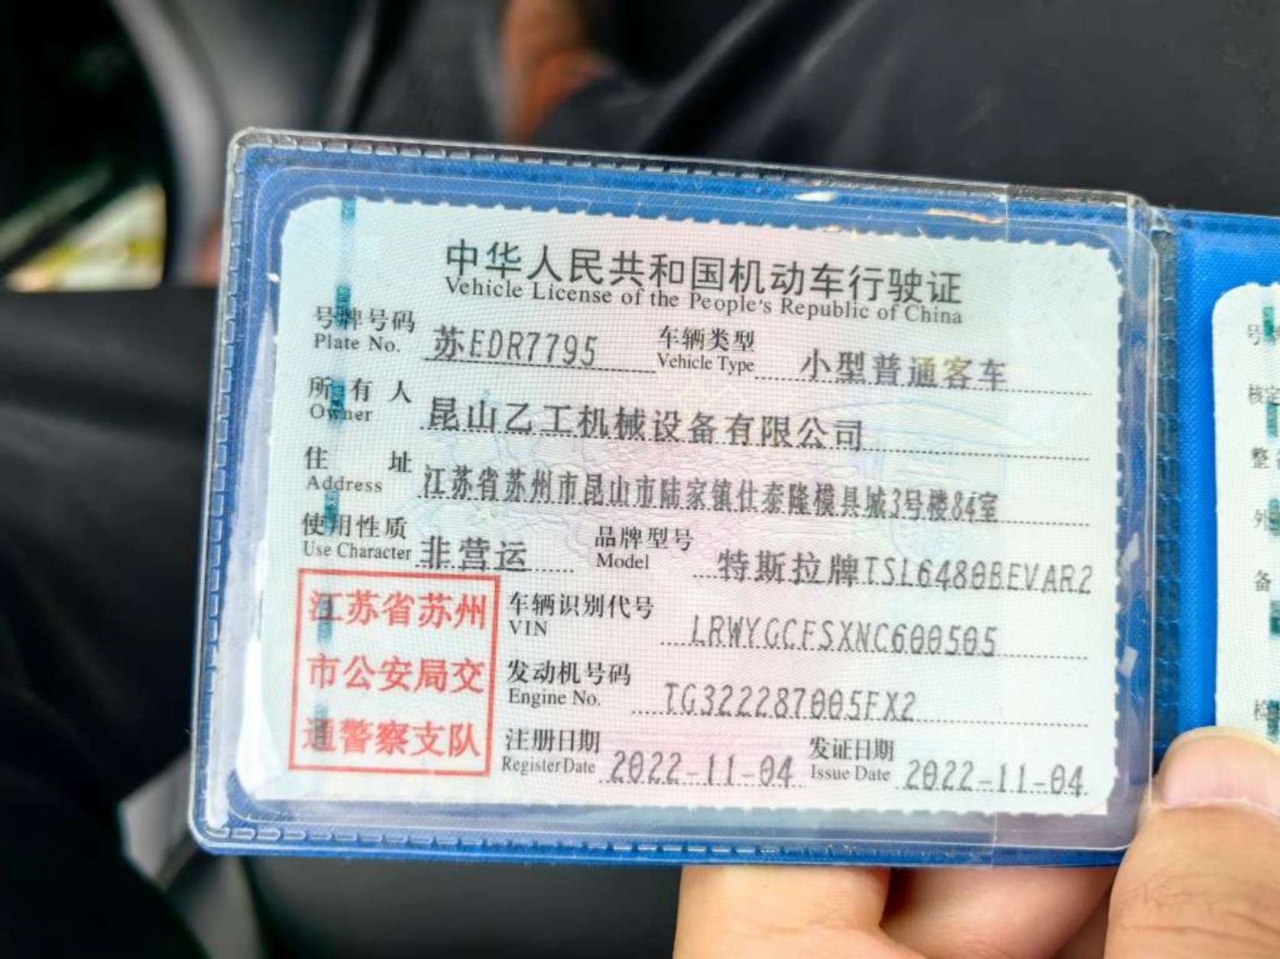 中华人民共和国机动车行驶证
Vehicle License of the People's Republic of China
号牌号码 苏EDR7795 车辆类型 小型普通客车
Plate No. Vehicle Type
所有人 昆山乙工机械设备有限公司
Owner
住址 江苏省苏州市昆山市陆家镇仕泰隆模具城3号楼84室
Address
使用性质 非营运 品牌型号 特斯拉牌TSL6480BEVAR2
Use Character Model
江苏省苏州
市公安局交
通警察支队
车辆识别代号 LRWYGCFSXNC600505
VIN
发动机号码 TG322287005FX2
Engine No.
注册日期 2022-11-04 发证日期 2022-11-04
Register Date Issue Date
号
核定
整
外
备
检